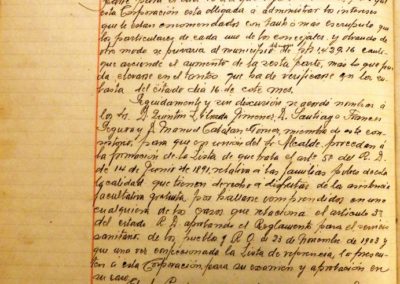 esta Corporación está obligada a administrar los intereses
que le estan encomendados con tanto ó mas escrupulo que
los particulares de cada uno de los concejales, y obrando de
otro modo se privaria al municipio
que asciende el aumento de la sesta parte, mas lo que pu
diera elevarse en el tanteo que ha de verificarse en la su
basta del citado dia 16 de este mes.
Seguidamente y sin discusion se acordó nombrar á
los Sr. D. Quintin Jimenez, D. Santiago Frances
Segura y D. Manuel Catalan miembros de este con
sistorio, para que en union del Sr. Alcalde procedan á
la formacion de la Lista de que trata el art. 5º del R. D.
de 14 de Junio de 1891 relativo á las familias pobres de esta
localidad que tienen derecho á disfrutar de la asistencia
facultativa gratuita por hallarse comprendidos en uno
cualquiera de los casos que relaciona el articulo 3º
del citado R. D. aprobando el Reglamento para el servicio
sanitario de los pueblos y R. O. de 23 de Noviembre de 1903 y
que una vez confeccionada la Lista de referencia, la presen
ten á esta Corporación para su examen y aprobación en
su caso.